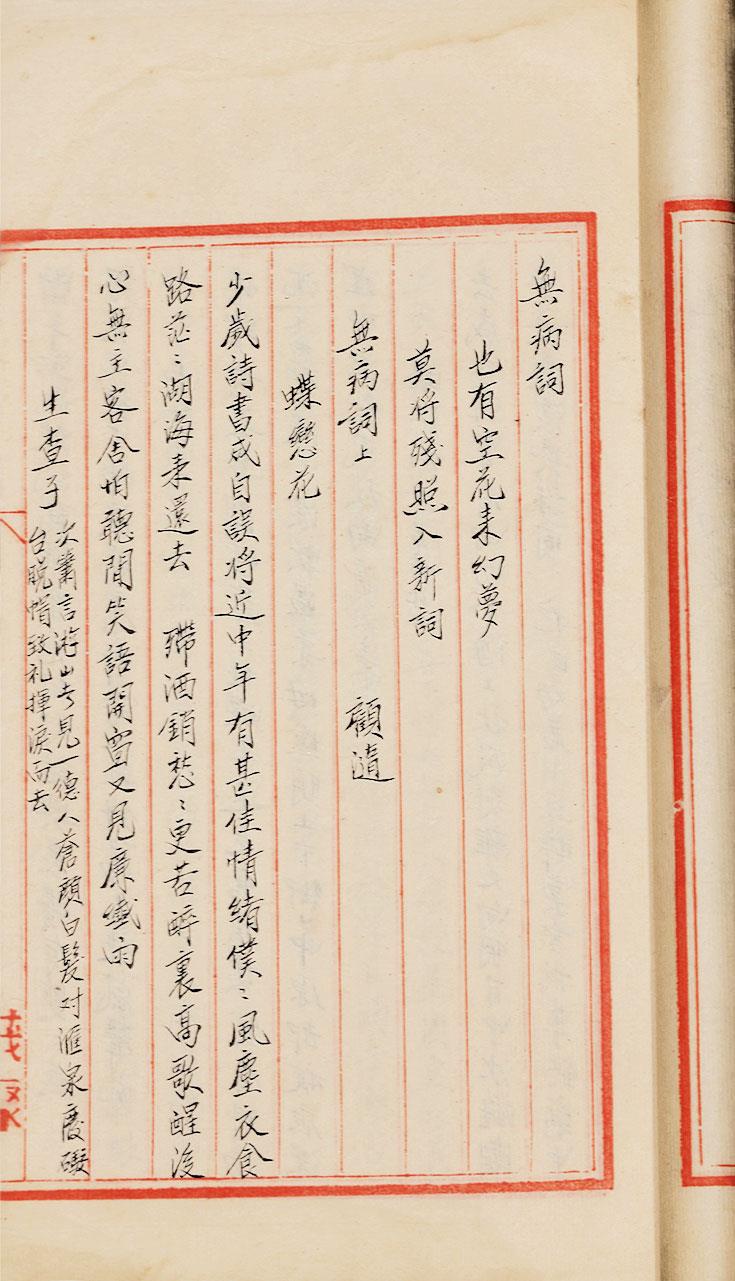 無病詞
也有空花来幻夢
莫将殘照入新詞
無病詞上 顧隨
蝶戀花
少歲詩書成自誤将近中年有甚佳情緒僕〻風塵衣食
路茫〻湖海来還去 殢酒銷愁〻更苦醉裏高歌醒後
心無主客舍怕聽閒笑語開窗又見廉纖雨
生查子
次簫言游山时見一德人蒼顔白髮对滙泉廢礮
台脱帽致礼揮淚而去